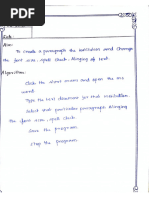 Aim:
To create a paragraph the Institution and change
the font size, spell check, Aligning of text.
Algorithm:
Click the start menu and open the ms
word.
Type the text document for that institution.
Select that particular paragraph Aligning
the font size, spell check
Save the program.
Stop the program.